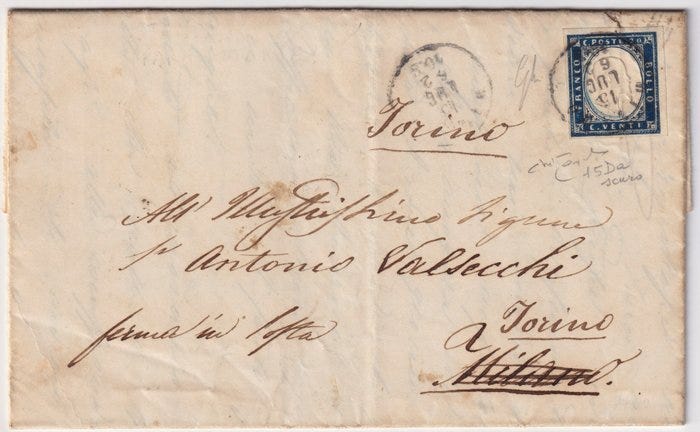 C. POSTE 20
FRANCO
BOLLO
C. VENTI
6
LUG
Torino
15Da
scuro
All' Illustrissimo Signore
Sr Antonio Valsecchi
ferma in Posta
Torino
a Milano.